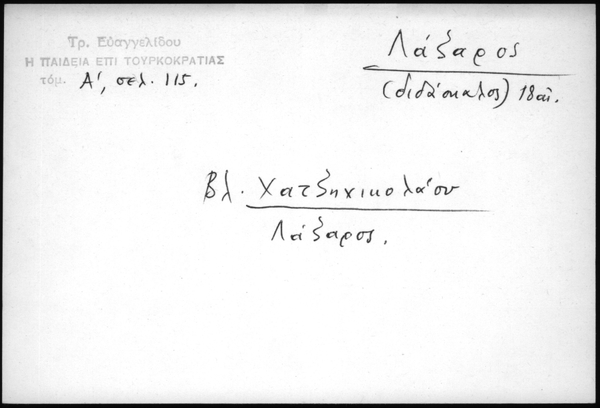 Τρ. Εὐαγγελίδου
Η ΠΑΙΔΕΙΑ ΕΠΙ ΤΟΥΡΚΟΚΡΑΤΙΑΣ
τόμ. Α', σελ. 115.
Λάζαρος
(διδάσκαλος) 18 αἰ.
Βλ. Χατζηνικολάου
Λάζαρος.